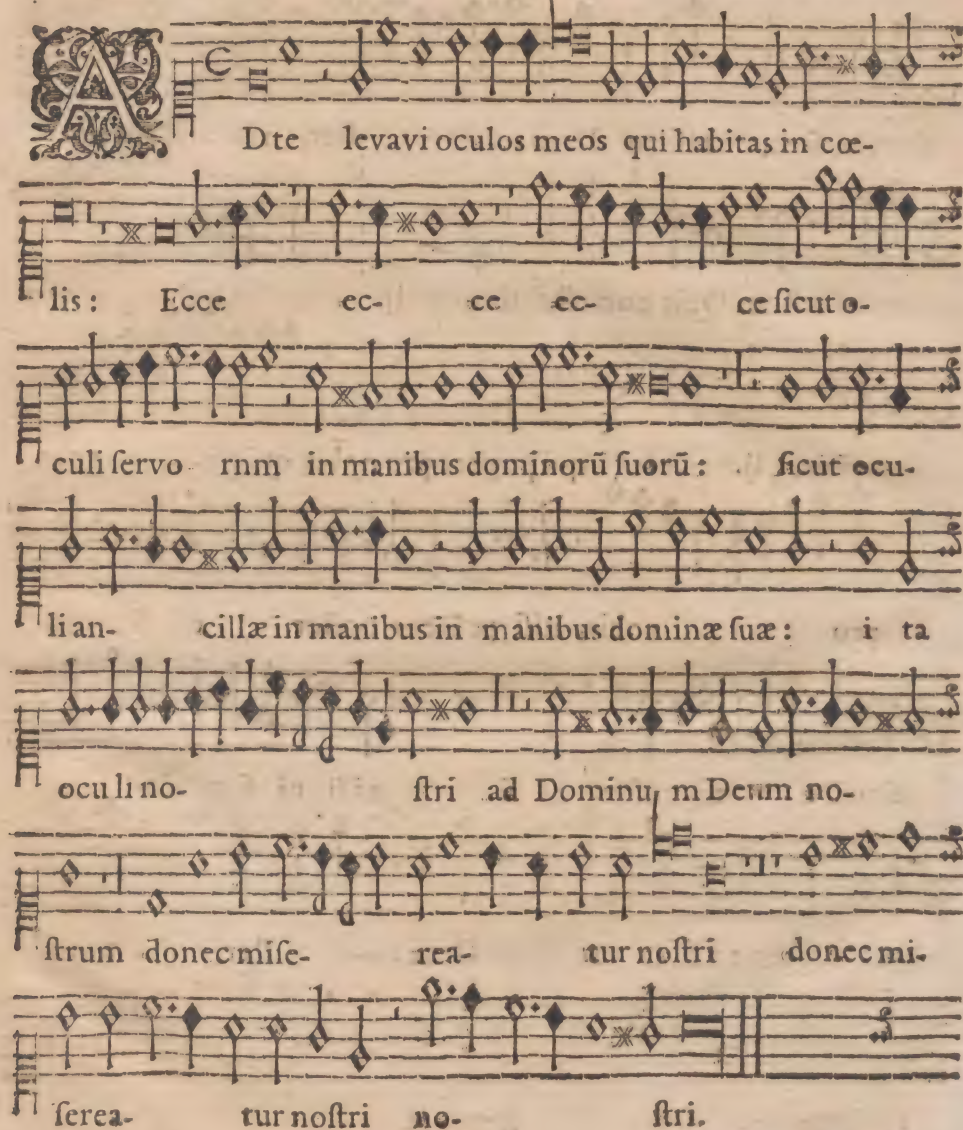 AD te levavi oculos meos qui habitas in cœ-
lis: Ecce ec- ce ec- ce ſicut o-
culi ſervo rnm in manibus dominorū ſuorū: ſicut ocu-
li an- cillæ in manibus in manibus dominæ ſuæ: i ta
oculi no- ſtri ad Dominu m Deum no-
ſtrum donec miſe- rea- tur noſtri donec mi-
ſerea- tur noſtri no- ſtri.